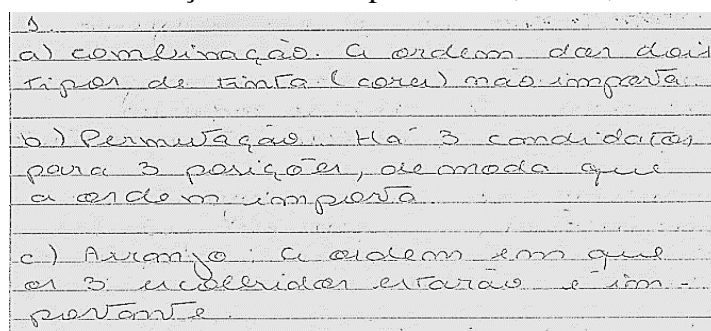 1
a) combinação. A ordem dos dois
tipos de tinta (cores) não importa.
b) Permutação. Há 3 candidatos
para 3 posições, de modo que
a ordem importa
c) Arranjo. A ordem em que
os 3 escolhidos estarão é im-
portante.